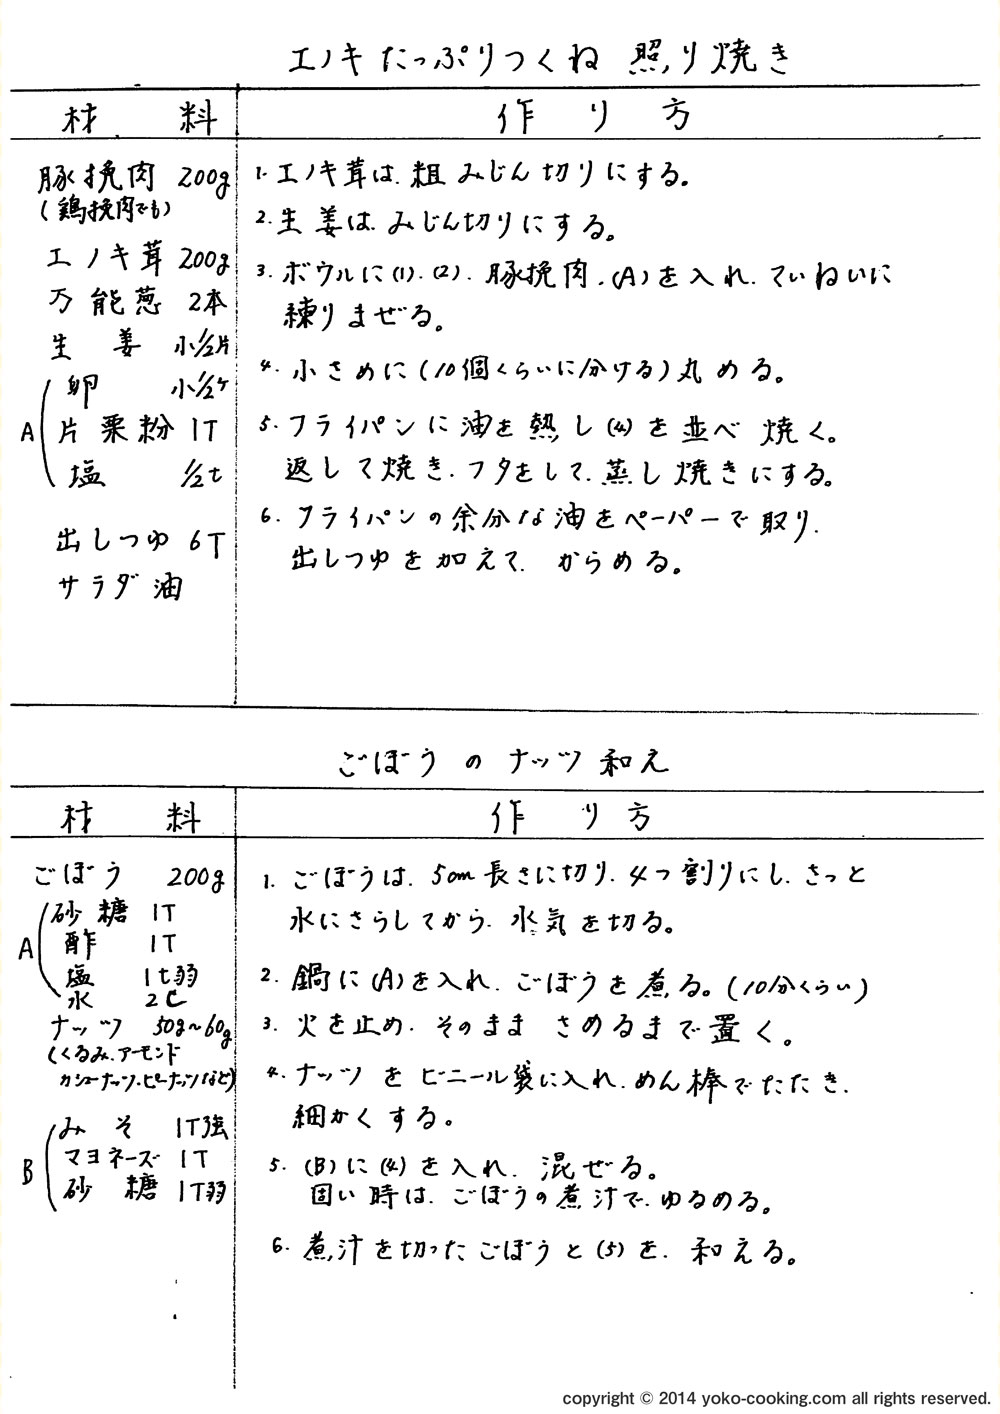 エノキたっぷりつくね 照り焼き
材 料
作 り 方
豚挽肉 200g
(鶏挽肉でも)
エノキ茸 200g
万能葱 2本
生 姜 小1/2片
A
卵 小1/2ケ
片栗粉 1T
塩 1/2t
出しつゆ 6T
サラダ油
1. エノキ茸は、粗みじん切りにする。
2. 生姜は、みじん切りにする。
3. ボウルに(1)、(2)、豚挽肉、(A)を入れ、ていねいに
練りまぜる。
4. 小さめに(10個くらいに分ける)丸める。
5. フライパンに油を熱し(4)を並べ焼く。
返して焼き、フタをして、蒸し焼きにする。
6. フライパンの余分な油をペーパーで取り、
出しつゆを加えて、からめる。
ごぼうのナッツ和え
材 料
作 り 方
ごぼう 200g
A
砂糖 1T
酢 1T
塩 1t弱
水 2C
ナッツ 50g〜60g
(くるみ、アーモンド
カシューナッツ、ピーナッツなど)
B
みそ 1T強
マヨネーズ 1T
砂糖 1T弱
1. ごぼうは、5cm長さに切り、4つ割りにし、さっと
水にさらしてから、水気を切る。
2. 鍋に(A)を入れ、ごぼうを煮る。(10分くらい)
3. 火を止め、そのままさめるまで置く。
4. ナッツをビニール袋に入れ、めん棒でたたき、
細かくする。
5. (B)に(4)を入れ、混ぜる。
固い時は、ごぼうの煮汁で、ゆるめる。
6. 煮汁を切ったごぼうと(5)を、和える。
copyright © 2014 yoko-cooking.com all rights reserved.